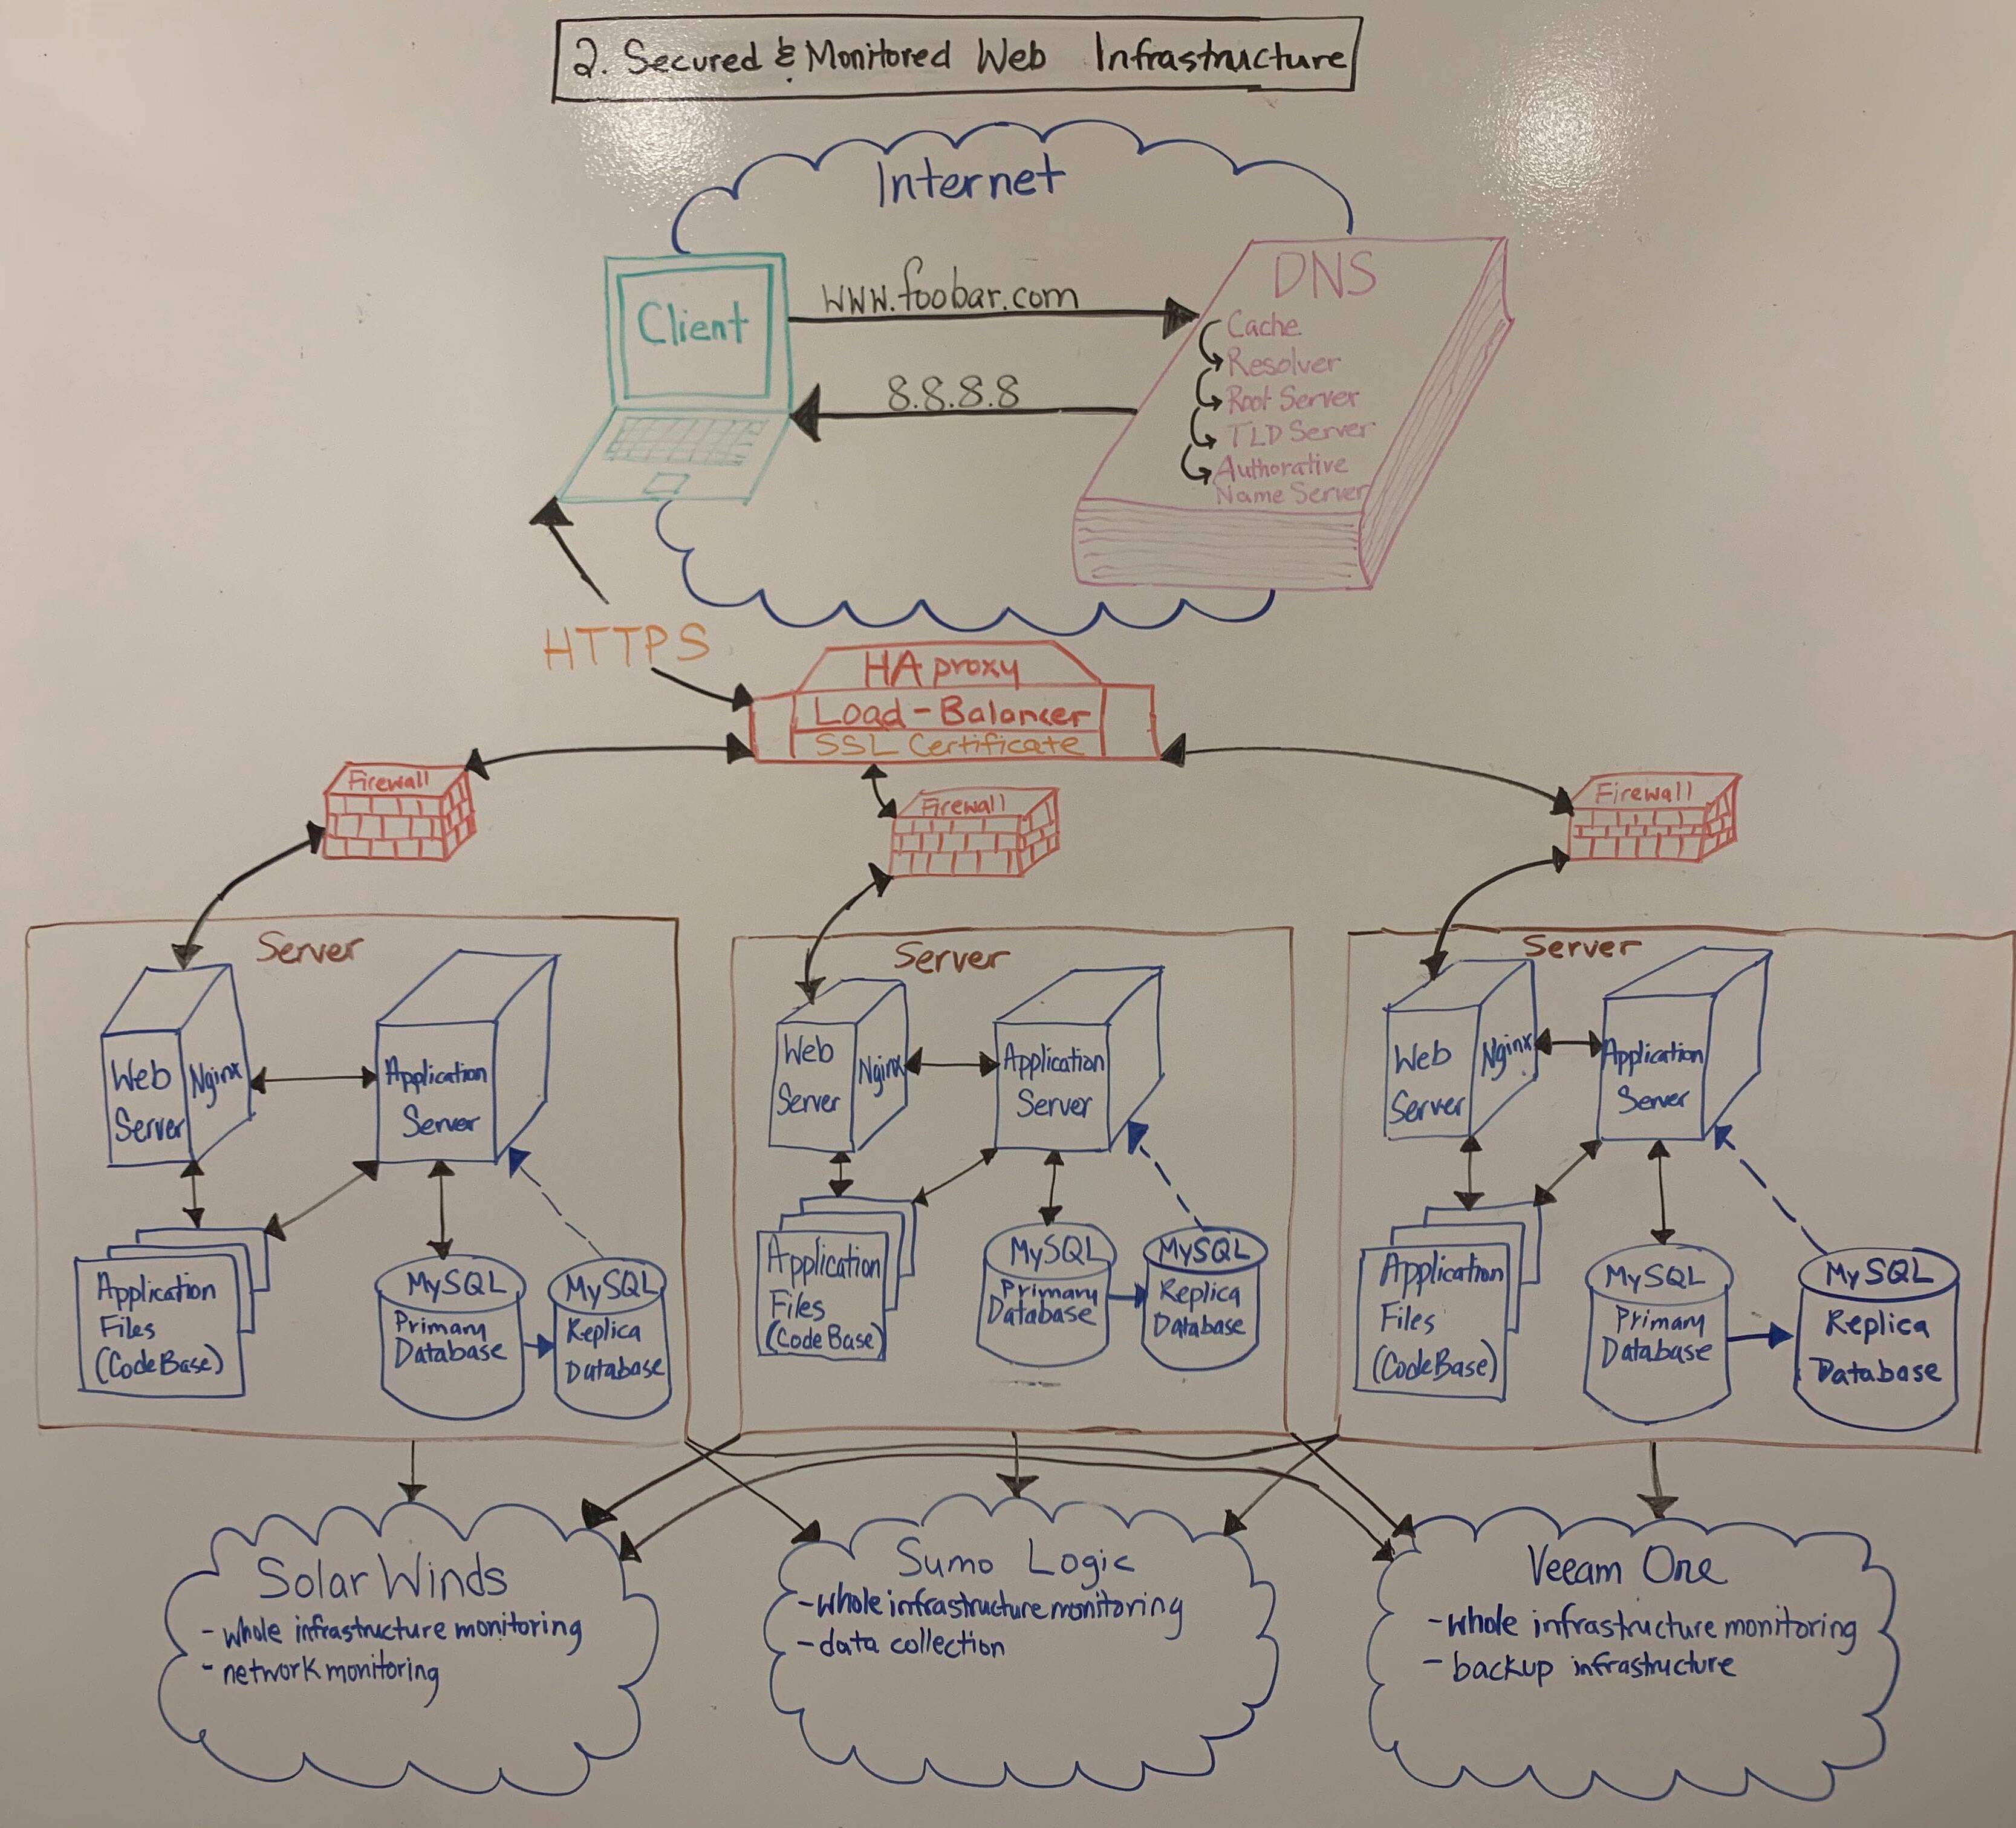 2. Secured & Monitored Web Infrastructure
Internet
Client
www.foobar.com
8.8.8.8
DNS
Cache
Resolver
Root Server
TLD Server
Authorative
Name Server
HTTPS
HA proxy
Load-Balancer
SSL Certificate
Firewall
Firewall
Firewall
Server
Web
Server
Nginx
Application
Server
Application
Files
(CodeBase)
MySQL
Primary
Database
MySQL
Replica
Database
Server
Web
Server
Nginx
Application
Server
Application
Files
(CodeBase)
MySQL
Primary
Database
MySQL
Replica
Database
Server
Web
Server
Nginx
Application
Server
Application
Files
(CodeBase)
MySQL
Primary
Database
MySQL
Replica
Database
Solar Winds
- whole infrastructure monitoring
- network monitoring
Sumo Logic
- whole infrastructure monitoring
- data collection
Veeam One
- whole infrastructure monitoring
- backup infrastructure